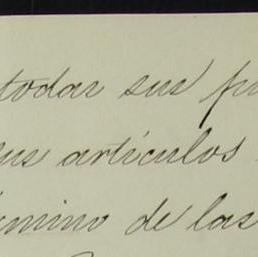 todas sus
sus artículos
de las